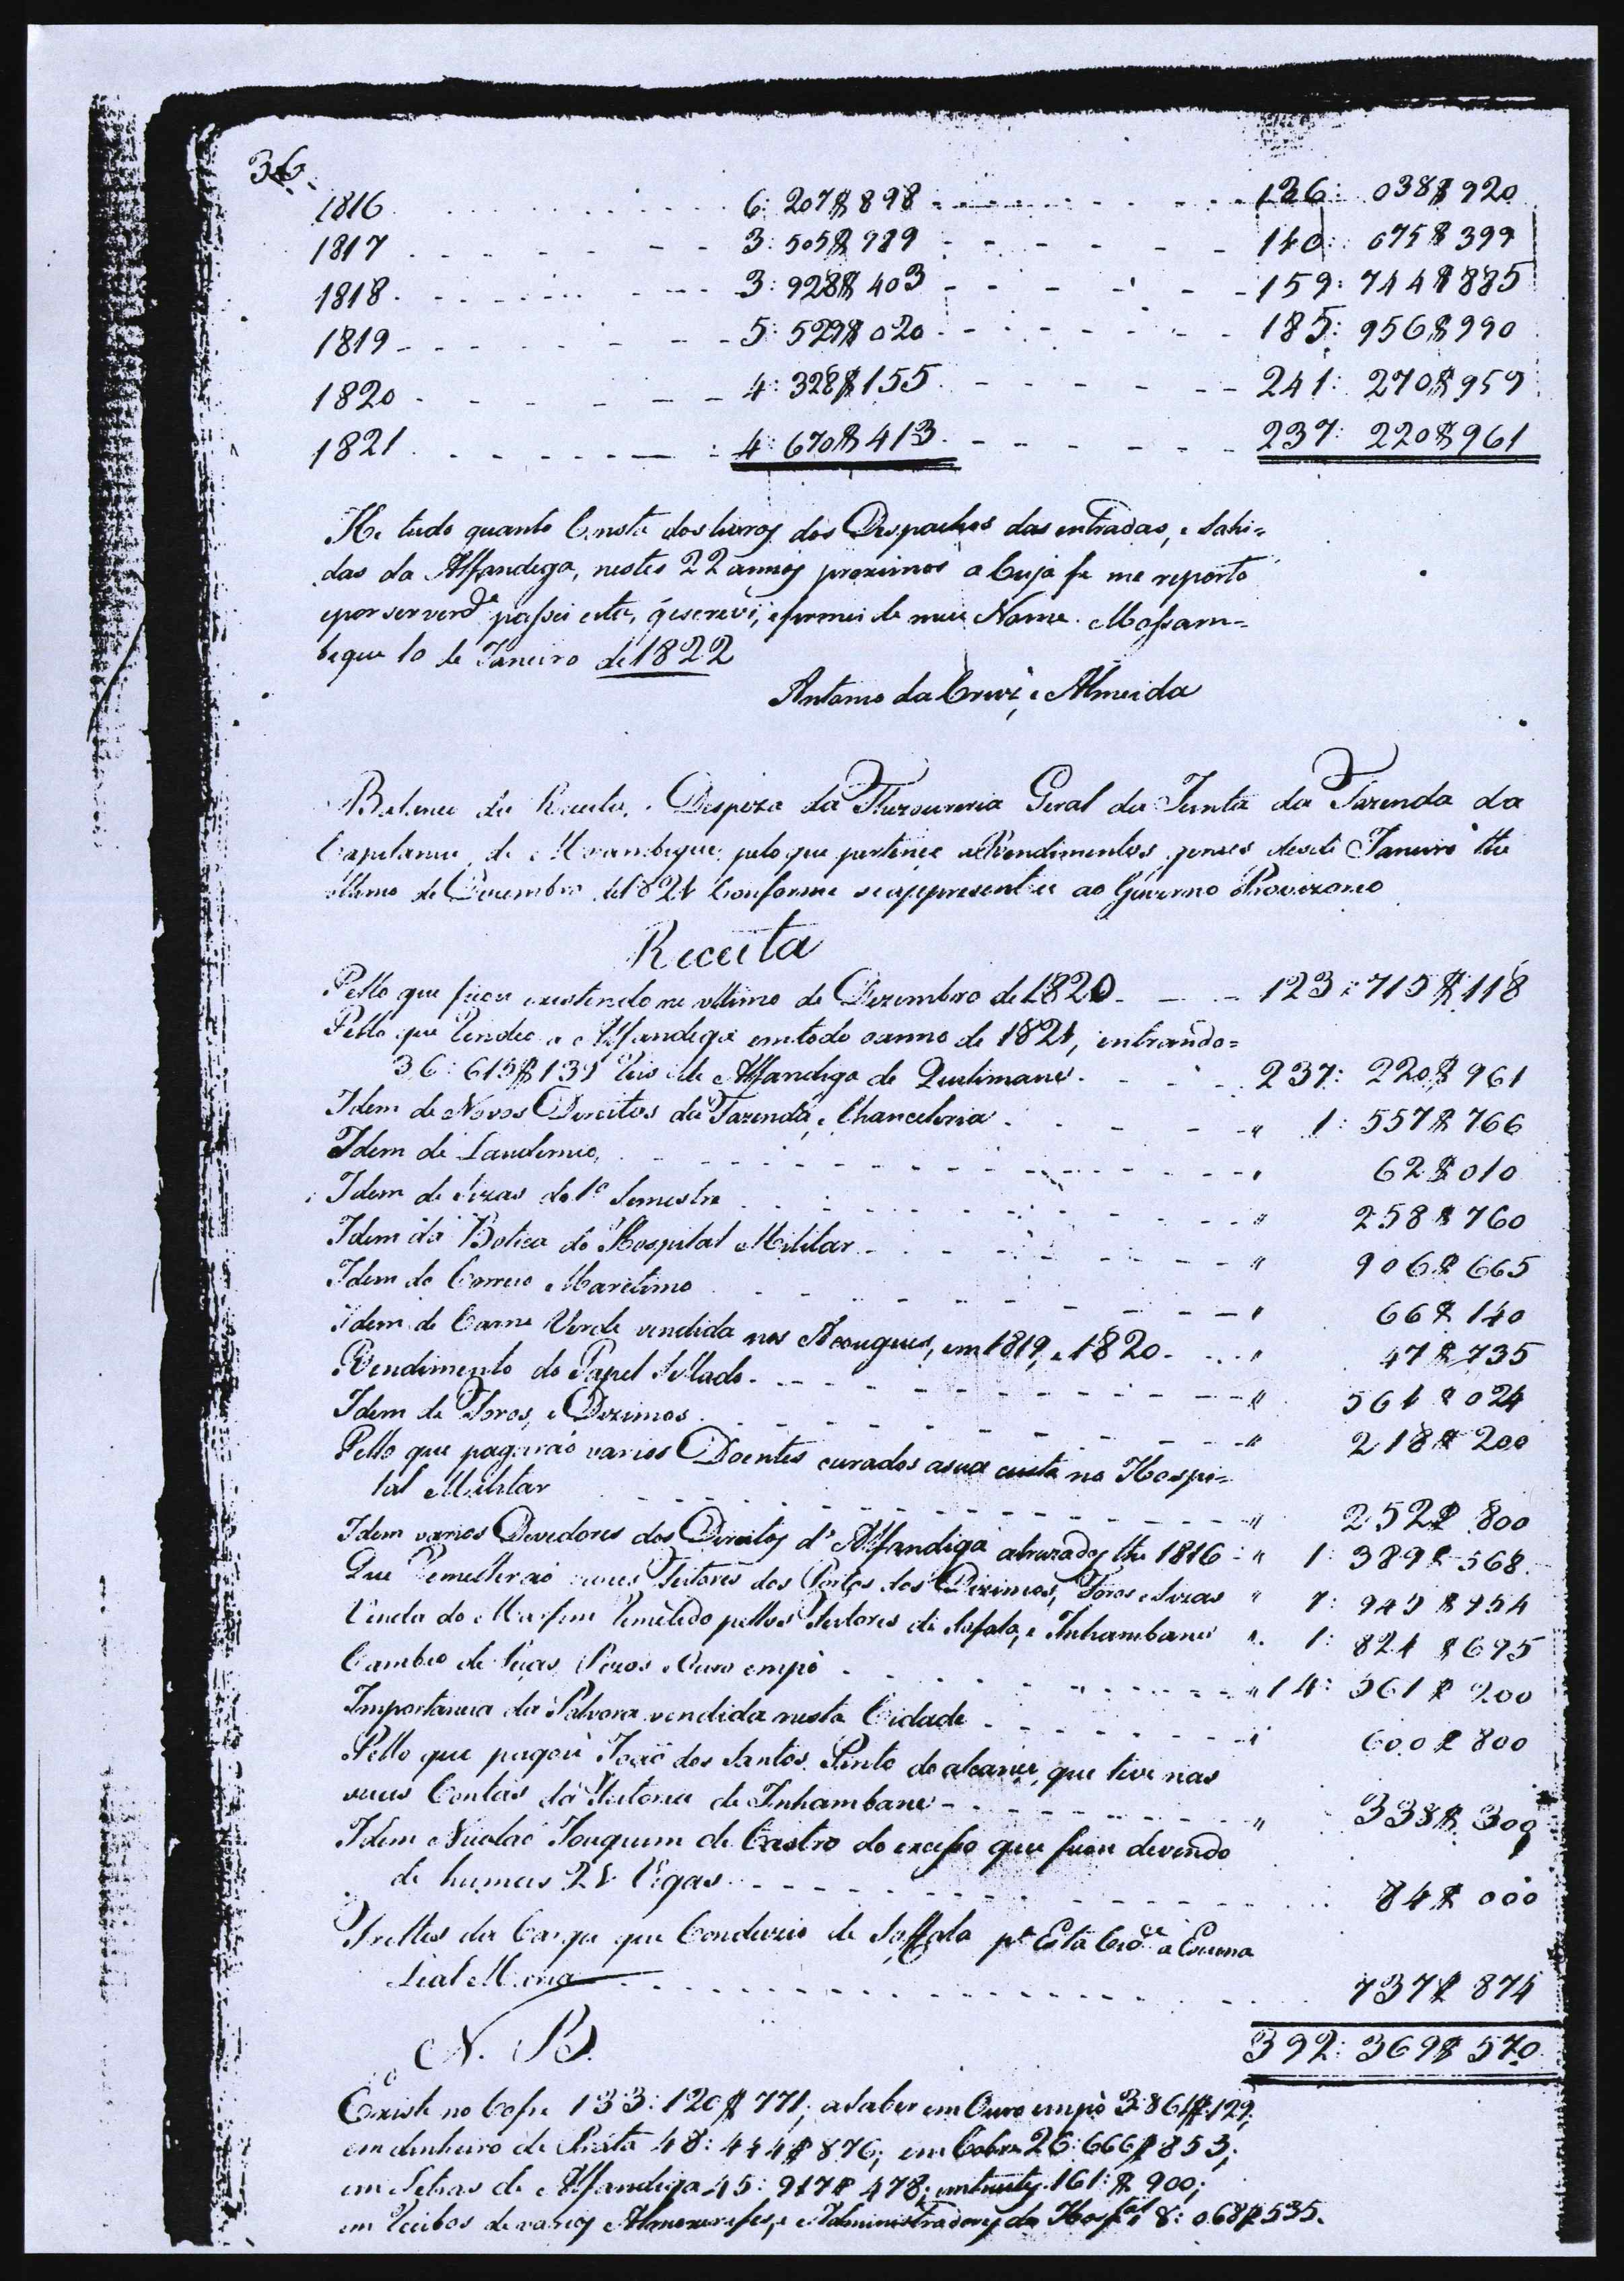 36
1816 6:207$898 136:038$920
1817 3:505$989 140:075$399
1818 3:928$403 159:744$885
1819 5:529$020 185:956$990
1820 4:328$155 241:270$959
1821 4:670$413 237:220$961
He tudo quanto Consta dos livros dos Despachos das entradas, e Sahi=
das da Alfandega, nestes 22 annos proximos a Cuja fe me reporto
e por ser verde passei esta, q escrevi, e firmei de meu Nome. Mossam=
bique 10 de Janeiro de 1822
Antonio da Cruz e Almeida
Balanço da Receita, e Despeza da Thezouraria Geral da Junta da Fazenda da
Capitania de Mossambique, pelo que pertence a Rendimentos desde Janeiro the
ultimo de Dezembro de 1821 Conforme se appresentou ao Governo Provizorio
Receita
Pello que ficou existindo no ultimo de Dezembro de 1820 123:715$118
Pello que Rendeo a Alfandega em todo o anno de 1821, entrando=
36:615$139 Reis da Alfandega de Quilimane 237:220$961
Idem de Novos Direitos da Fazenda, e Chancelaria " 1:557$766
Idem de Laudemio " 62$010
Idem de Sizas do 1º Semestre " 258$760
Idem da Botica do Hospital Militar " 906$665
Idem do Correio Maritimo " 66$140
Idem de Carne Verde vendida nos Açougues, em 1819, e 1820 " 47$735
Rendimento do Papel Sellado " 561$024
Idem de Foros, e Dizimos " 218$200
Pello que pagarão varios Doentes curados a sua custa no Hospi=
tal Militar " 252$800
Idem varios Devedores dos Direitos d'Alfandega atrazados the 1816 " 1:389$568
Que Remetterão Feitores dos Portos dos Dizimos, Foros e Sizas " 7:945$954
Venda do Marfim Remetido pellos Feitores de Sofala, e Inhambane " 1:821$695
Cambio de Pezos e Ouro em pó " 14:561$200
Importancia da Polvora vendida nesta Cidade " 600$800
Pello que pagou João dos Santos Pinto do alcance, que teve nas
suas Contas da Feitoria de Inhambane " 338$300
Idem Nicolao Joaquim de Castro do excesso que ficou devendo
de humas 21 Vigas 84$000
Frettes da Carga que Conduzio de Soffala pa Esta Cide a Escuna
Leal Maria 737$874
392:369$570
N. B.
Existe no Cofre 133:120$771; a saber em Ouro em pó 3:861$129;
em dinheiro de Prata 48:444$876; em Cobre 26:666$853;
em Letras de Alfandega 45:917$478; 161:$900;
em Recibos de varios Almoxarifes, e Administradores do Hospal 8:068$535.